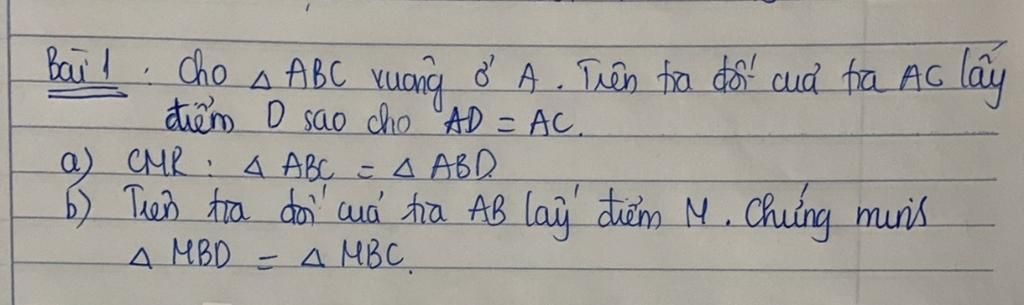 Bài 1. Cho △ ABC vuông ở A. Trên tia đối của tia AC lấy
điểm D sao cho AD = AC.
a) CMR: △ ABC = △ ABD.
b) Trên tia đối của tia AB lấy điểm M. Chứng minh
△ MBD = △ MBC.